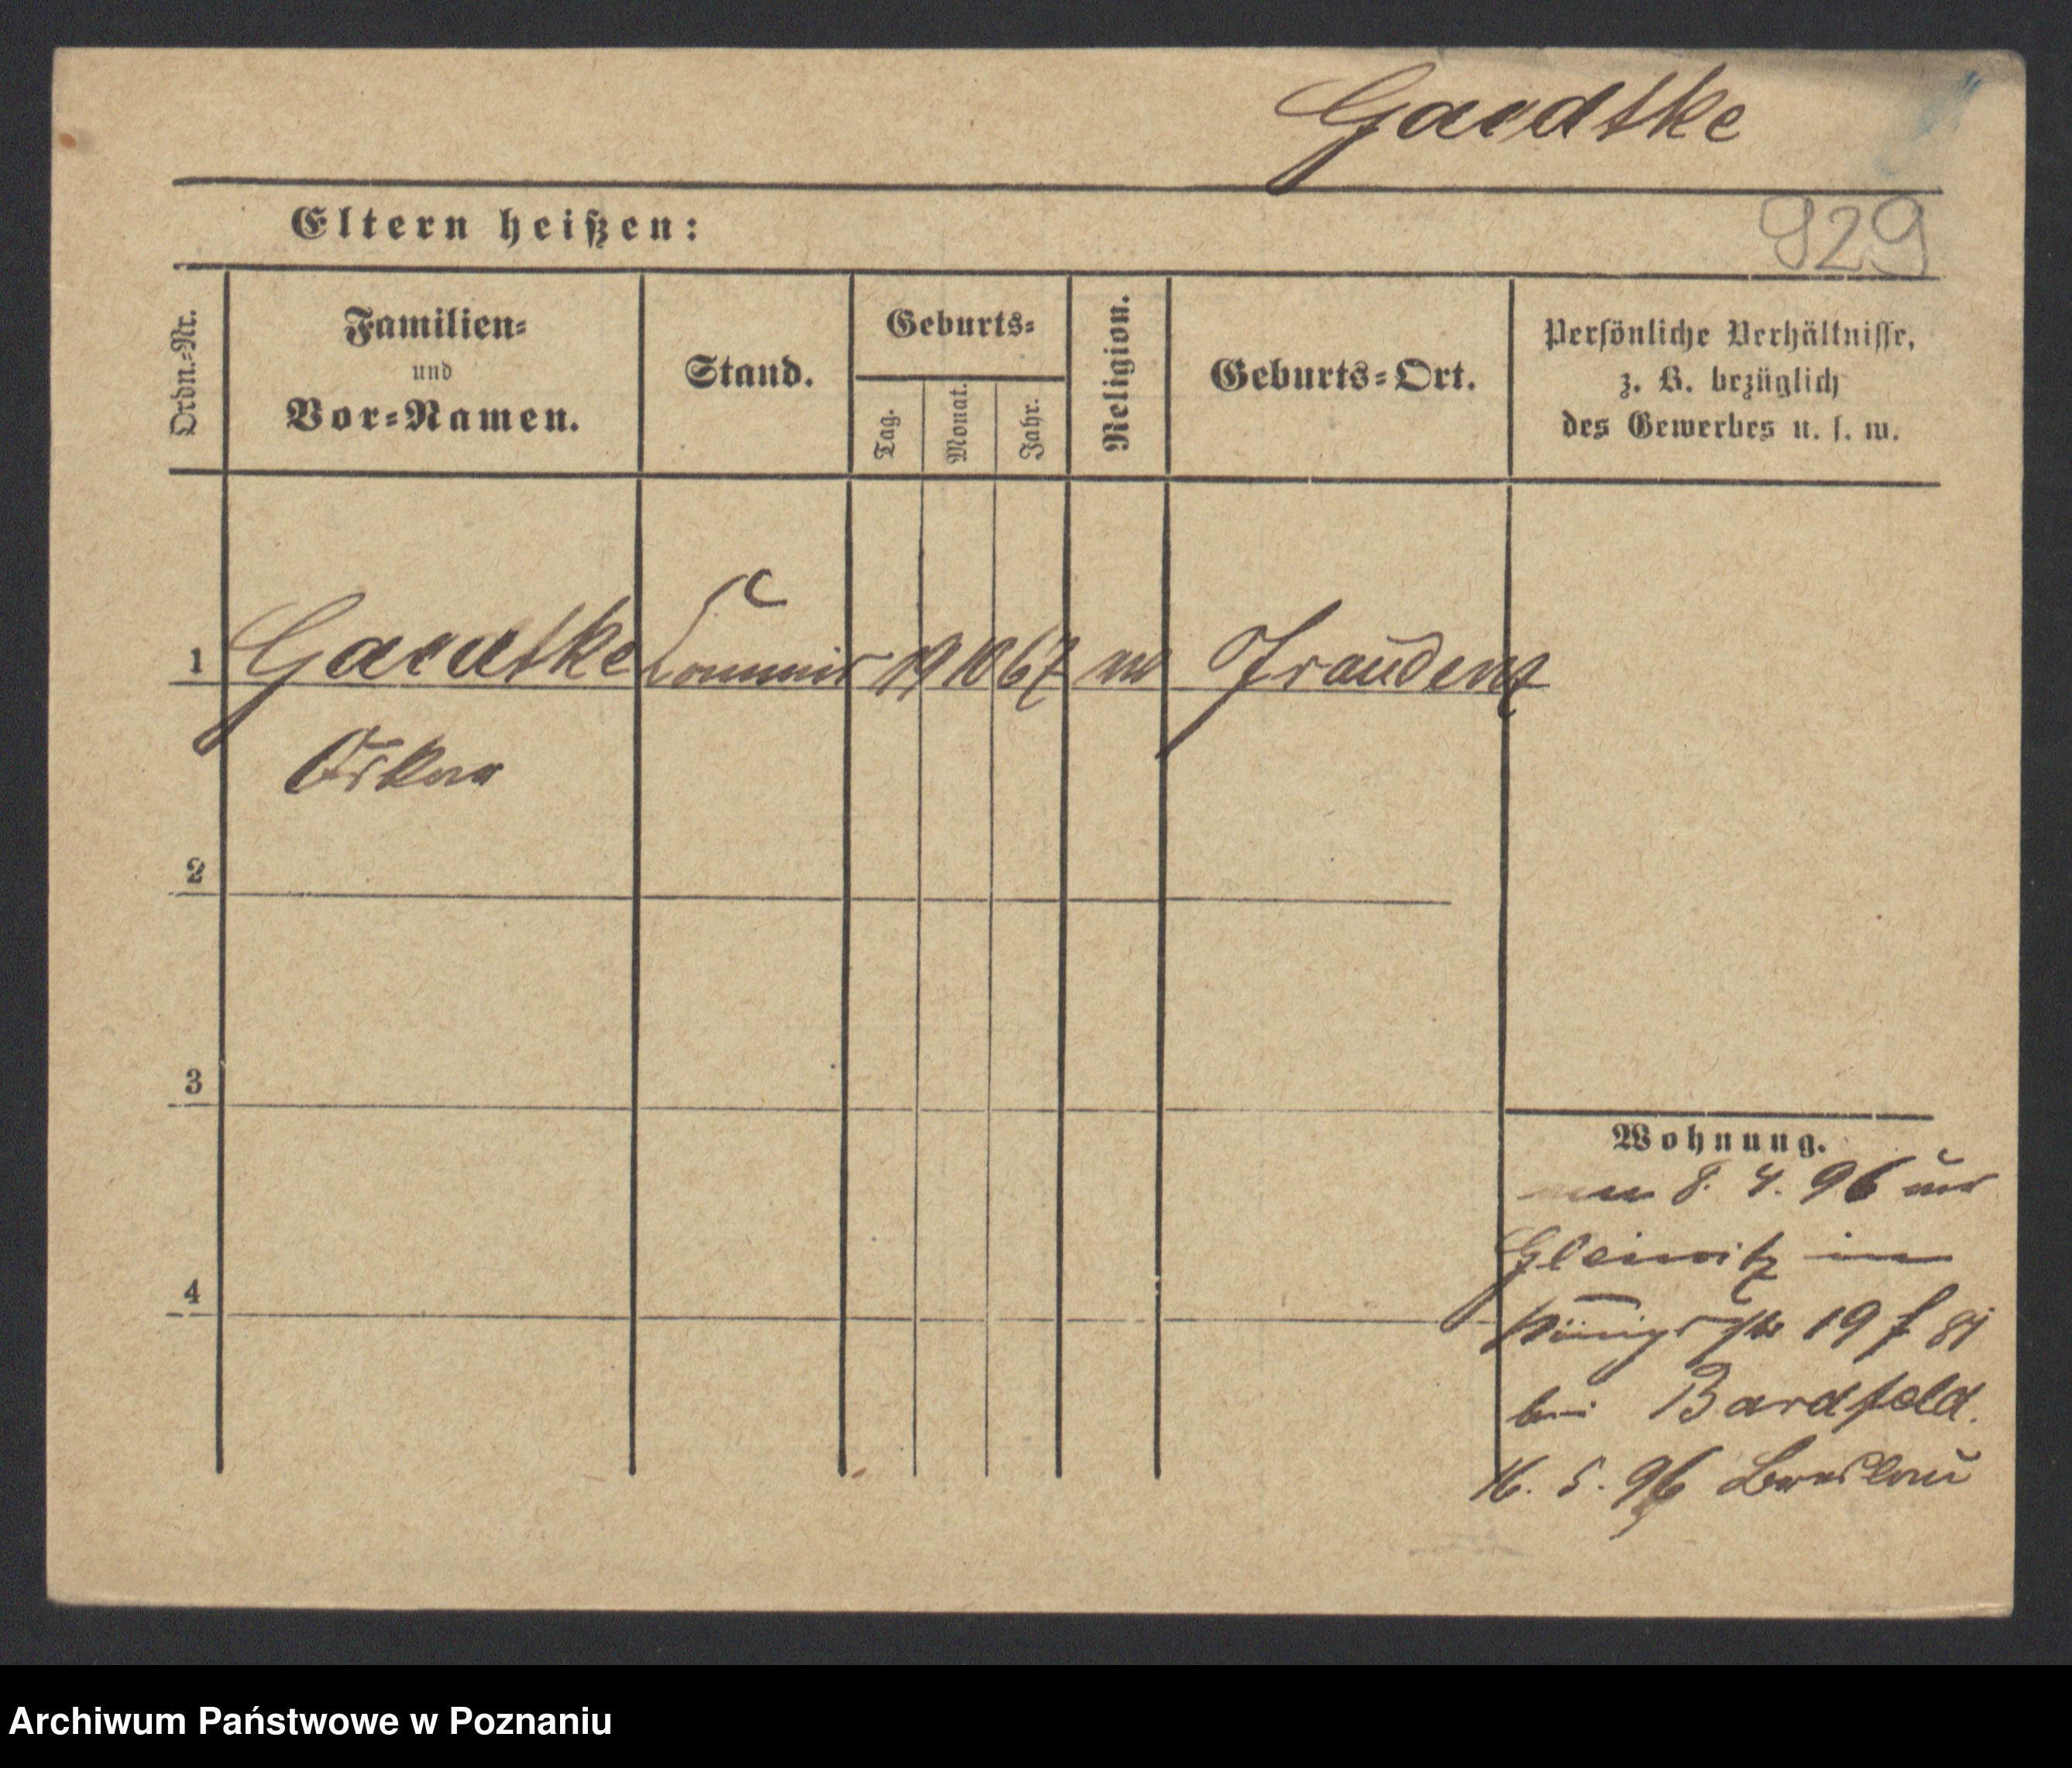 Gaedtke
Eltern heißen:
929
Ordn.-Nr.
Familien-
und
Vor-Namen.
Stand.
Geburts-
Tag.
Monat.
Jahr.
Religion.
Geburts-Ort.
Persönliche Verhältnisse,
z. B. bezüglich
des Gewerbes u. s. w.
1 Gaedtke Commis 19 10 67 Graudenz
Oskar
2
3
4
Wohnung.
8. 4. 96
Gleiwitz
Königstr 19
bei Bardfeld.
16. 5. 96 Breslau
Archiwum Państwowe w Poznaniu